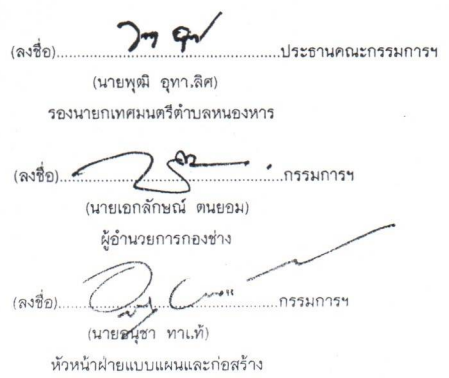 (ลงชื่อ)..................................................ประธานคณะกรรมการฯ
(นายพุฒิ อุทา.ลิศ)
รองนายกเทศมนตรีตำบลหนองหาร
(ลงชื่อ)..................................................กรรมการฯ
(นายเอกลักษณ์ ตนยอม)
ผู้อำนวยการกองช่าง
(ลงชื่อ)..................................................กรรมการฯ
(นายอนุชา ทาเ.ท้)
หัวหน้าฝ่ายแบบแผนและก่อสร้าง